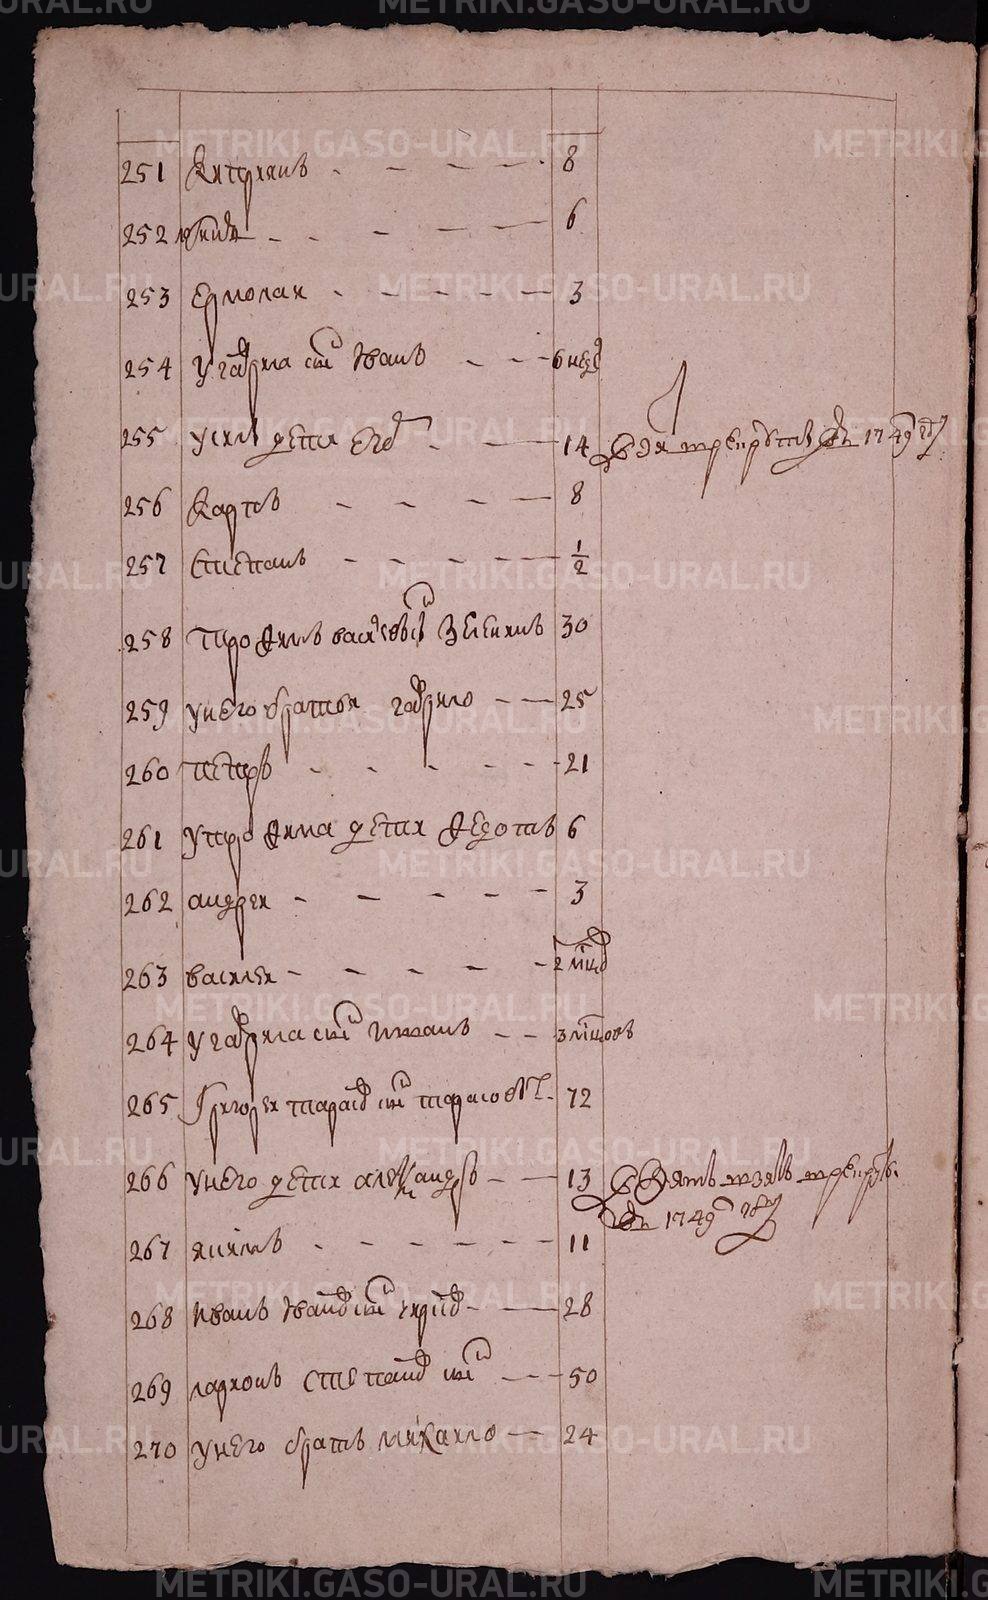 251 Киприянъ 8
252 6
253 Ермолаи 3
254 У Гаврила снъ Иванъ 6 нед
255 У дети Егоръ 14 взят в рекруты в 1749 году
256 Карпъ 8
257 Степанъ 1/2
258 Трофимъ Васильевъ снъ 30
259 У него братья Гаврило 25
260 Петръ 21
261 У Трофима дети Федотъ 6
262 Андреи 3
263 Василеи 2 мсцо
264 У Гаврила снъ Иванъ 3 мсцовъ
265 Григореи Тарасовъ снъ Тарасовы 72
266 У него дети Александръ 13 взятъ в рекруты
в 1749 году
267 Якимъ 11
268 Иванъ Ивановъ снъ 28
269 Ларионъ Степановъ снъ 50
270 У него братъ Михаило 24
METRIKI.GASO-URAL.RU